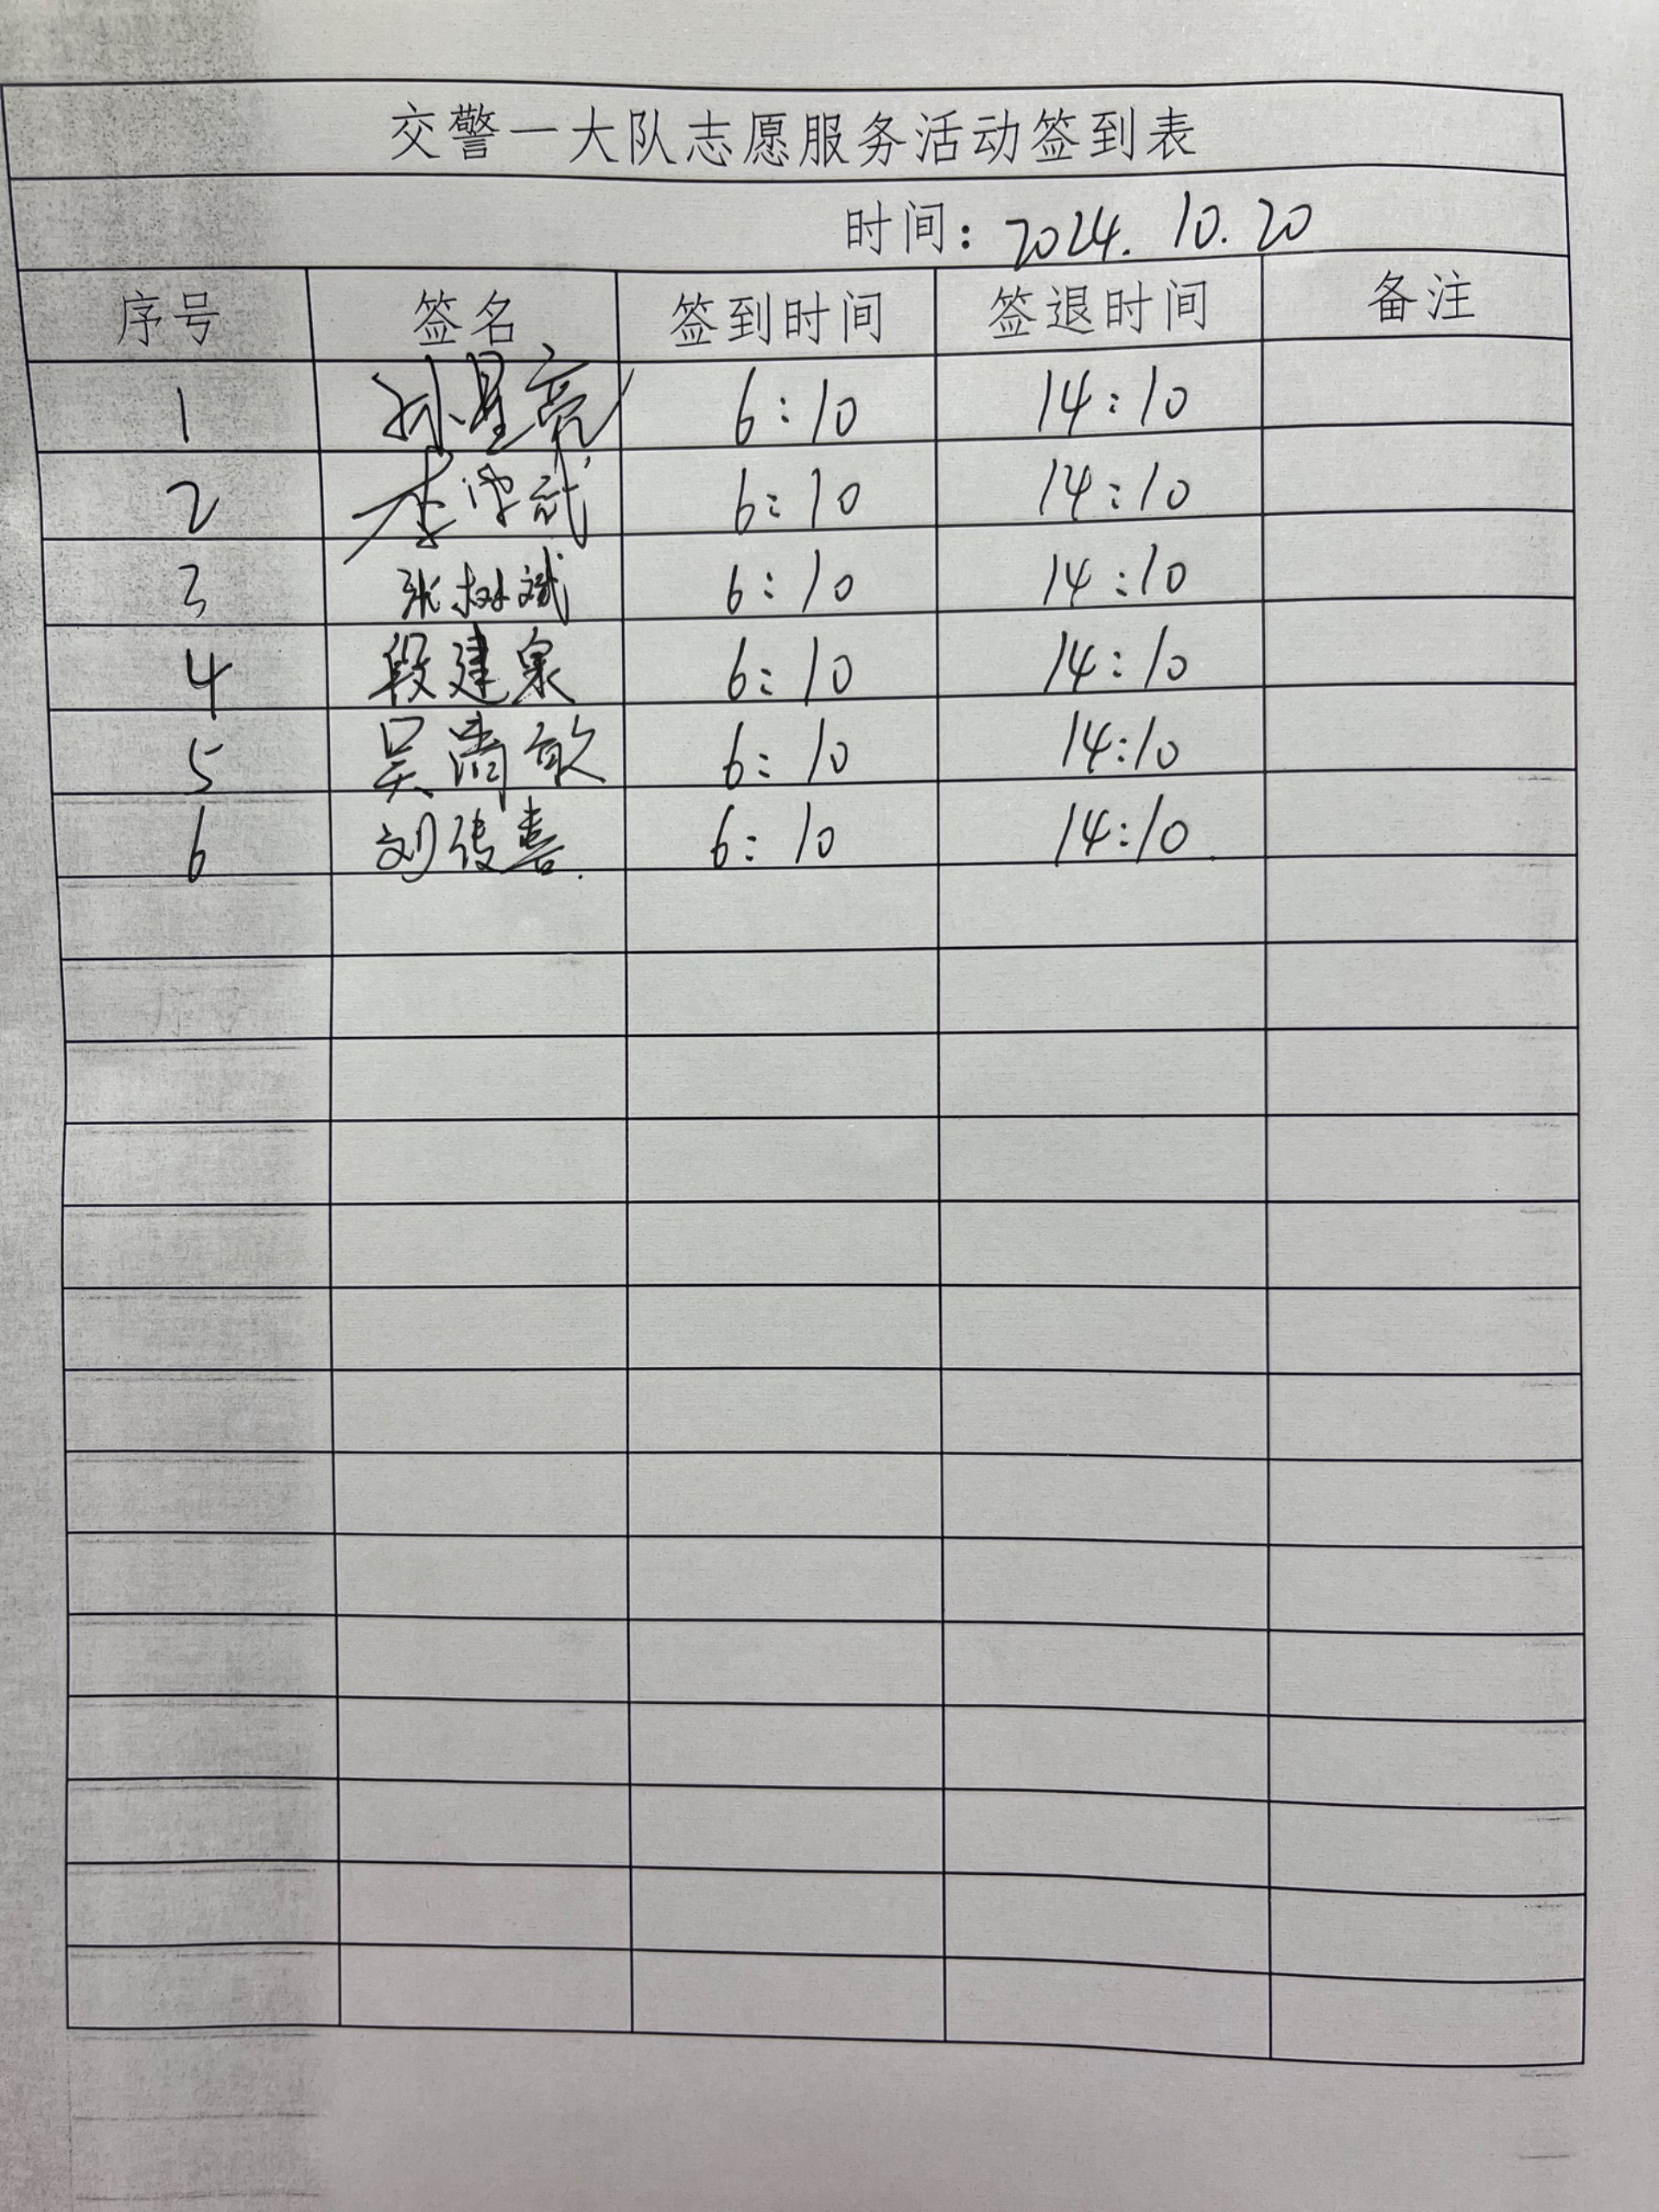 交警一大队志愿服务活动签到表
时间：2024.10.20
序号 签名 签到时间 签退时间 备注
1 孙星亮 6:10 14:10
2 李 武 6:10 14:10
3 张树斌 6:10 14:10
4 段建泉 6:10 14:10
5 吴清敏 6:10 14:10
6 刘传喜 6:10 14:10